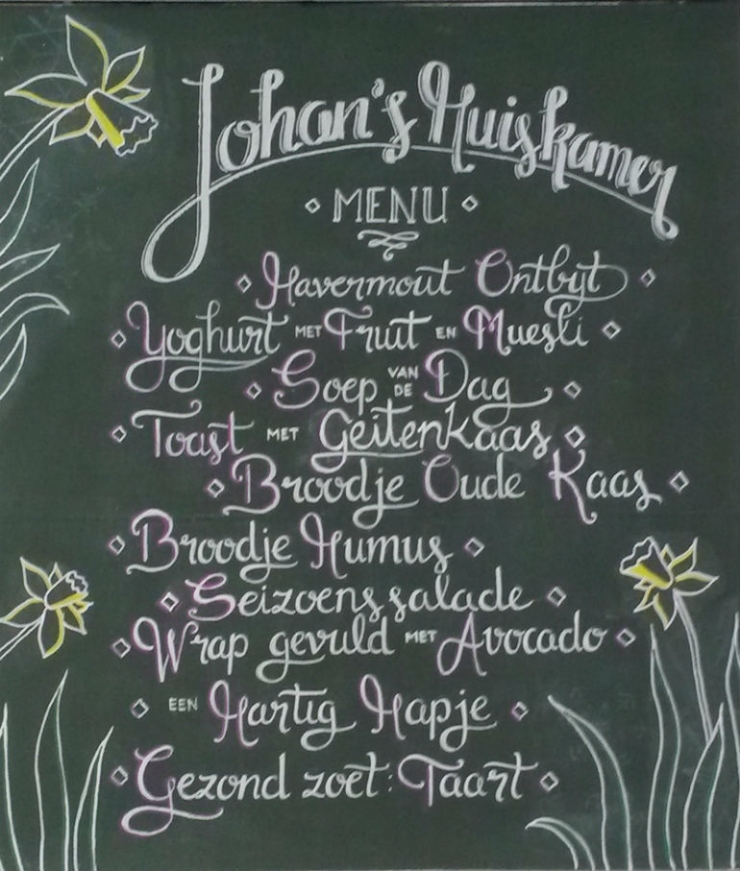 Johan's Huiskamer
MENU
Havermout Ontbijt
Yoghurt MET Fruit EN Muesli
Soep VAN DE Dag
Toast MET Geitenkaas
Broodje Oude Kaas
Broodje Humus
Seizoenssalade
Wrap gevuld MET Avocado
EEN Hartig Hapje
Gezond zoet: Taart